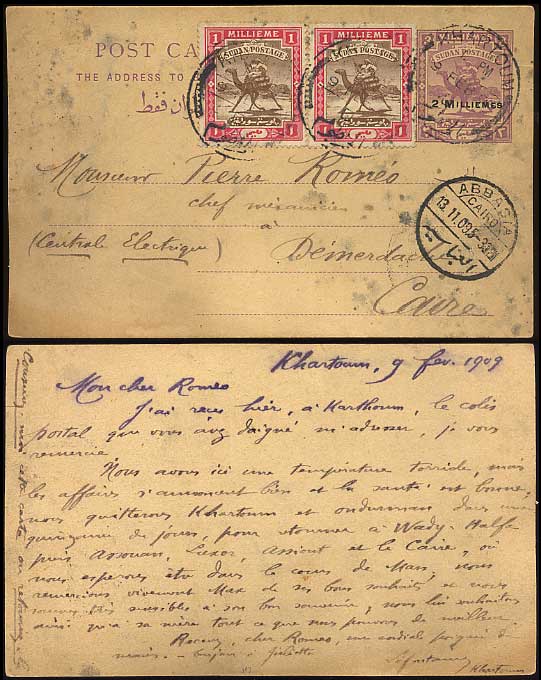 POST CA
THE ADDRESS TO
فقط
1 MILLIEME 1
SUDAN POSTAGE
1 1
1 MILLIEME 1
SUDAN POSTAGE
1 1
SUDAN POSTAGE
2 MILLIEMES
KHARTOUM
ABBASIA
CAIRO
Monsieur Pierre Roméo
chef mécanicien
à
(Centrale Electrique) Démerdache
Caire
Khartoum, 9 fev. 1909
Mon cher Romeo
J'ai reçu hier, à Karthoum, le colis
postal que vous avez daigné m'adresser, je vous
remercie
Nous avons ici une température torride, mais
les affaires s'annoncent bien et la santé est bonne,
nous quitterons Khartoum et Omdurman dans une
quinzaine de jours, pour retourner à Wady-Halfa
puis Assouan, Luxor, Assiout et le Caire, où
nous esperons être dans le cours de Mars, nous
remercions vivement Max de ses bons souhaits et nous
sommes très sensibles à son bon souvenir, nous lui souhaitons
ainsi qu'à sa mère tout ce que nous pouvons de meilleur.
Recevez, cher Romeo, une cordiale poignée de
mains. - bonjour à
Khartoum
Conservez-moi cette carte ou retournez-la